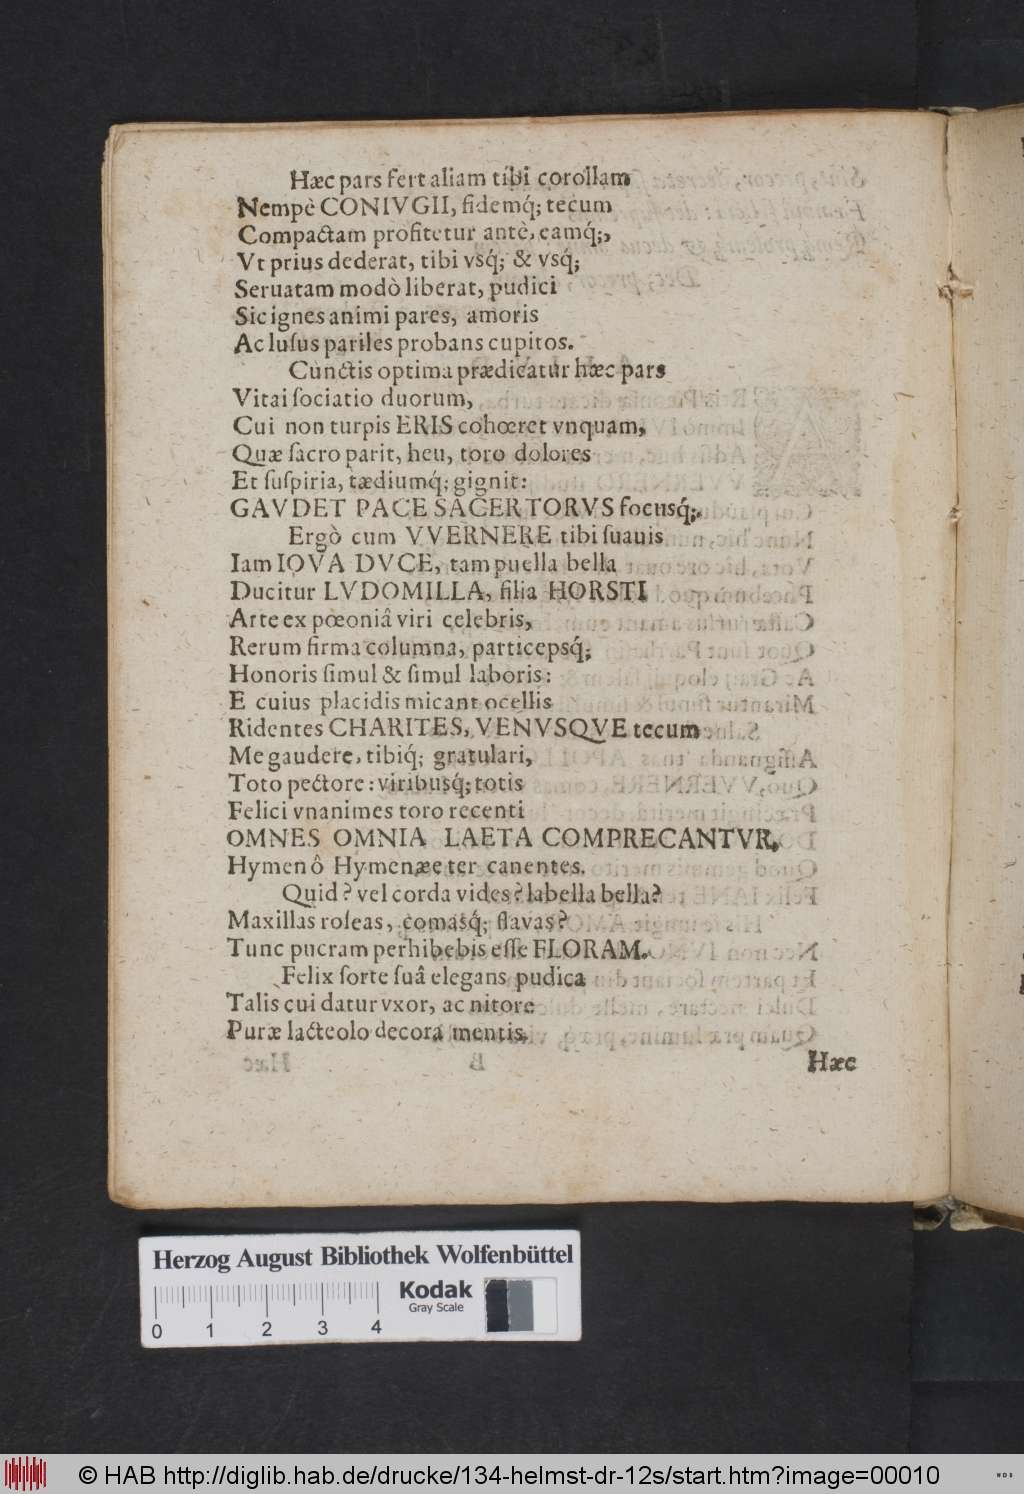 Hæc pars fert aliam tibi corollam
Nempè CONIVGII, fidemq́; tecum
Compactam profitetur antè, eamq́;,
Vt prius dederat, tibi vsq́; & vsq́;
Seruatam modò liberat, pudici
Sic ignes animi pares, amoris
Ac luſus pariles probans cupitos.
Cunctis optima prædicatur hæc pars
Vitai ſociatio duorum,
Cui non turpis ERIS cohœret vnquam,
Quæ ſacro parit, heu, toro dolores
Et ſuſpiria, tædiumq́; gignit:
GAVDET PACE SACER TORVS focusq́;.
Ergò cum VVERNERE tibi ſuauis
Iam IOVA DVCE, tam puella bella
Ducitur LVDOMILLA, filia HORSTI
Arte ex pœoniâ viri celebris,
Rerum firma columna, particepsq́;
Honoris ſimul & ſimul laboris:
E cuius placidis micant ocellis
Ridentes CHARITES, VENVSQVE tecum
Me gaudere, tibiq́; gratulari,
Toto pectore: viribusq́; totis
Felici vnanimes toro recenti
OMNES OMNIA LAETA COMPRECANTVR,
Hymen ô Hymenæe ter canentes.
Quid? vel corda vides? labella bella?
Maxillas roſeas, comasq́; flavas?
Tunc pueram perhibebis eſſe FLORAM.
Felix ſorte ſuâ elegans pudica
Talis cui datur vxor, ac nitore
Puræ lacteolo decora mentis.
Hæc
Herzog August Bibliothek Wolfenbüttel
Kodak
Gray Scale
0 1 2 3 4
© HAB http://diglib.hab.de/drucke/134-helmst-dr-12s/start.htm?image=00010